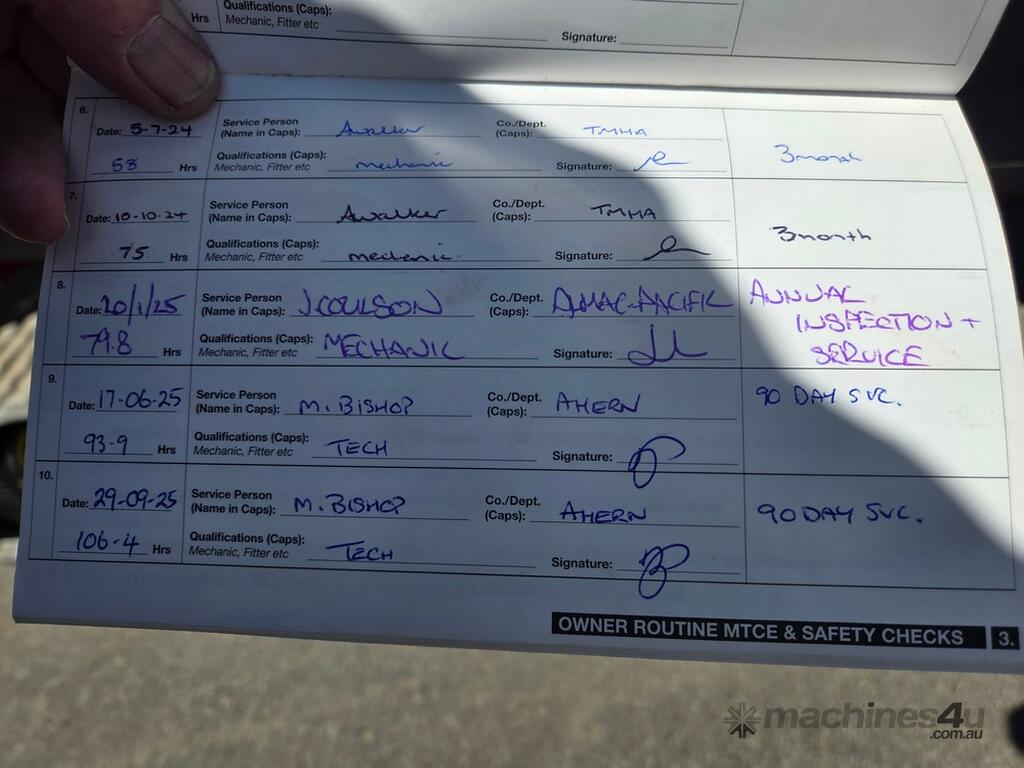 Hrs
Qualifications (Caps):
Mechanic, Fitter etc
Signature:
6.
Date: 5-7-24
Service Person
(Name in Caps): Awalker
Co./Dept.
(Caps): TMHA
3 month
58 Hrs
Qualifications (Caps):
Mechanic, Fitter etc mechanic
Signature:
7.
Date: 10-10-24
Service Person
(Name in Caps): Awalker
Co./Dept.
(Caps): TMHA
3 month
75 Hrs
Qualifications (Caps):
Mechanic, Fitter etc mechanic
Signature:
8.
Date: 20/1/25
Service Person
(Name in Caps): J.COULSON
Co./Dept.
(Caps): DMAC-PACIFIC
ANNUAL
INSPECTION +
SERVICE
79.8 Hrs
Qualifications (Caps):
Mechanic, Fitter etc MECHANIC
Signature:
9.
Date: 17-06-25
Service Person
(Name in Caps): M. BISHOP
Co./Dept.
(Caps): AHERN
90 DAY SVC.
93-9 Hrs
Qualifications (Caps):
Mechanic, Fitter etc TECH
Signature:
10.
Date: 29-09-25
Service Person
(Name in Caps): M. BISHOP
Co./Dept.
(Caps): AHERN
90 DAY SVC.
106-4 Hrs
Qualifications (Caps):
Mechanic, Fitter etc TECH
Signature:
OWNER ROUTINE MTCE & SAFETY CHECKS 3.
machines4u
.com.au